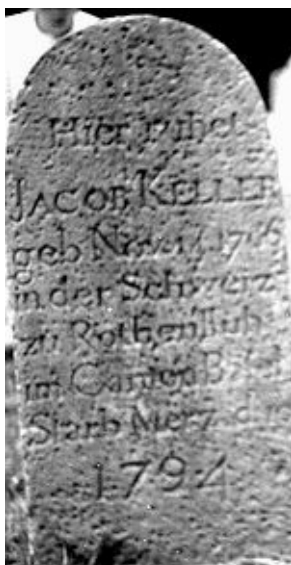 Hier ruhet
JACOB KELLER
geb Nov 17 1706
in der Schweiz
zu Rothenfluh
im Canton Basel
Starb Merz d
1794